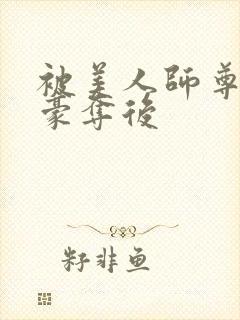 被美人師尊
豪奪後
籽非鱼